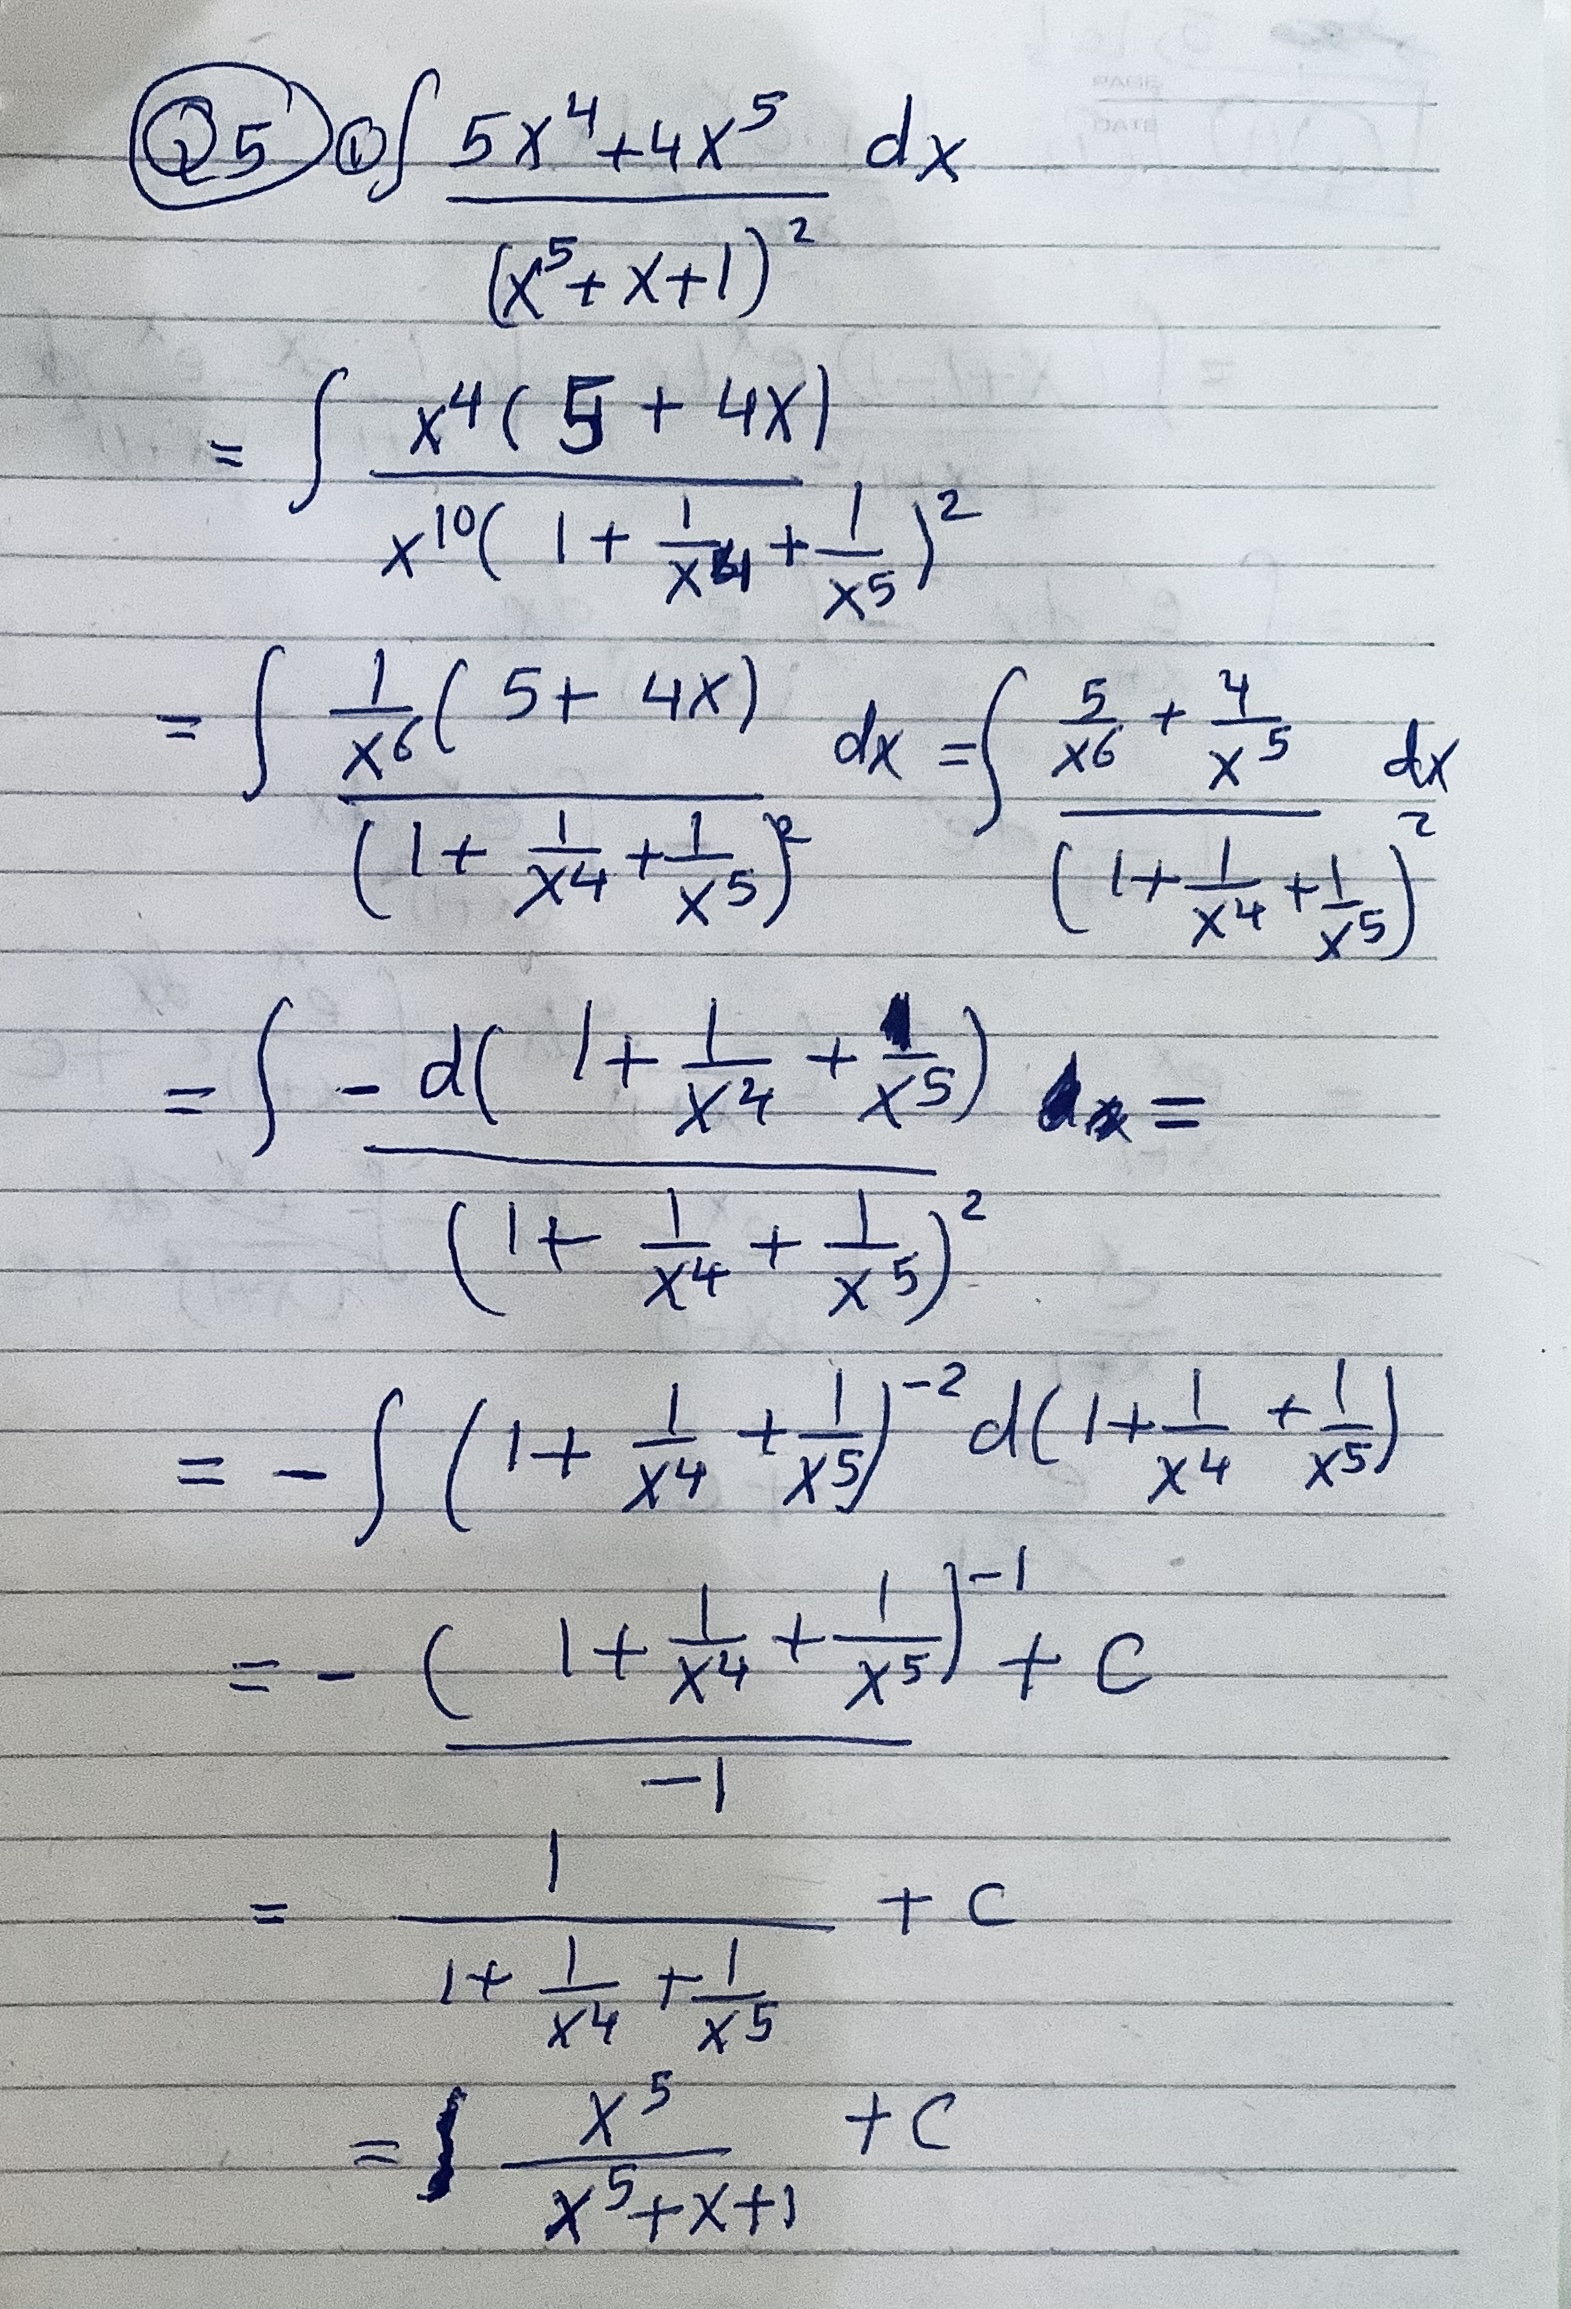 Q5 ① ∫ (5x⁴+4x⁵)/(x⁵+x+1)² dx
= ∫ x⁴(5+4x)/x¹⁰(1+1/x⁴+1/x⁵)²
= ∫ 1/x⁶(5+4x)/(1+1/x⁴+1/x⁵)² dx = ∫ (5/x⁶+4/x⁵)/(1+1/x⁴+1/x⁵)² dx
= ∫ -d(1+1/x⁴+1/x⁵)/(1+1/x⁴+1/x⁵)² =
= -∫(1+1/x⁴+1/x⁵)⁻² d(1+1/x⁴+1/x⁵)
= -(1+1/x⁴+1/x⁵)⁻¹/-1 + C
= 1/(1+1/x⁴+1/x⁵) + C
= x⁵/(x⁵+x+1) + C